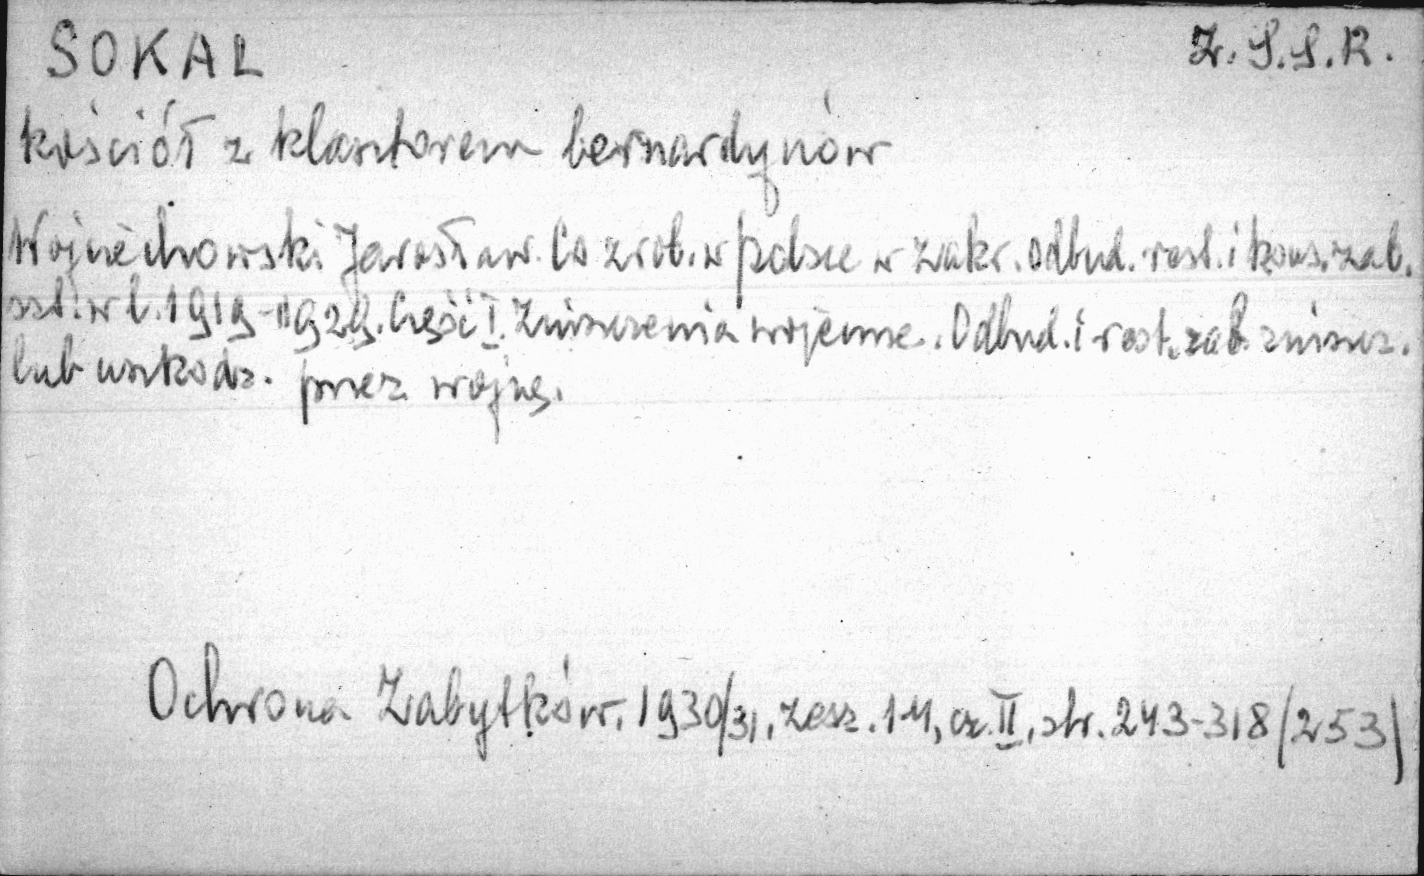 SOKAL Z.S.S.R.
kościół z klasztorem bernardynów
Wojciechowski Jarosław. Co zrob. w Polsce w zakr. odbud. rest. i kons. zab.
szt. w l. 1919-1929. Część I. Zniszczenia wojenne. Odbud. i rest. zab. zniszcz.
lub uszkodz. przez wojnę.
Ochrona Zabytków, 1930/31, zesz. 1-4, cz. II, str. 243-318 (253)